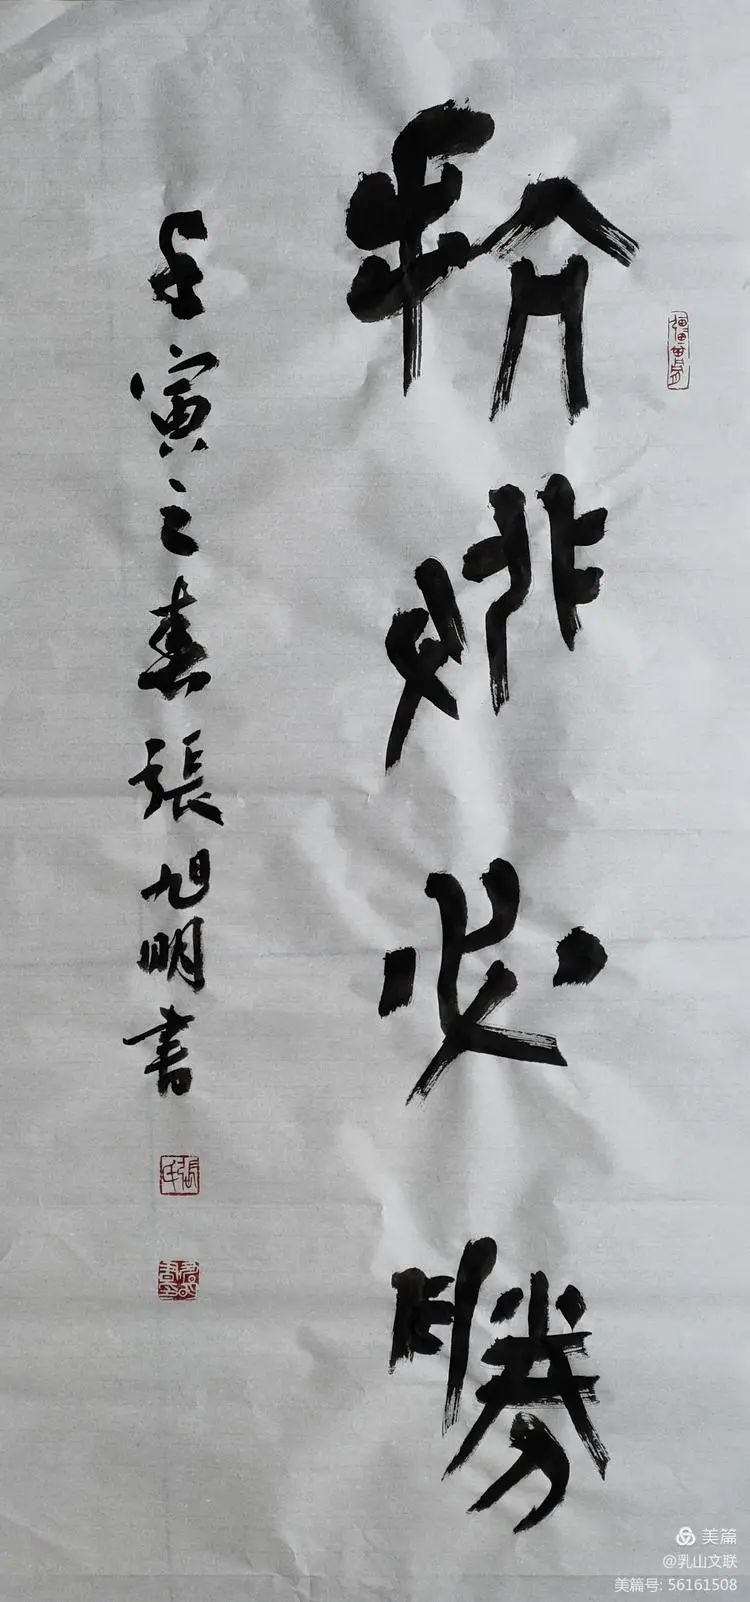 抗疫必勝
壬寅之春張旭明書
美篇
@乳山文联
美篇号: 56161508